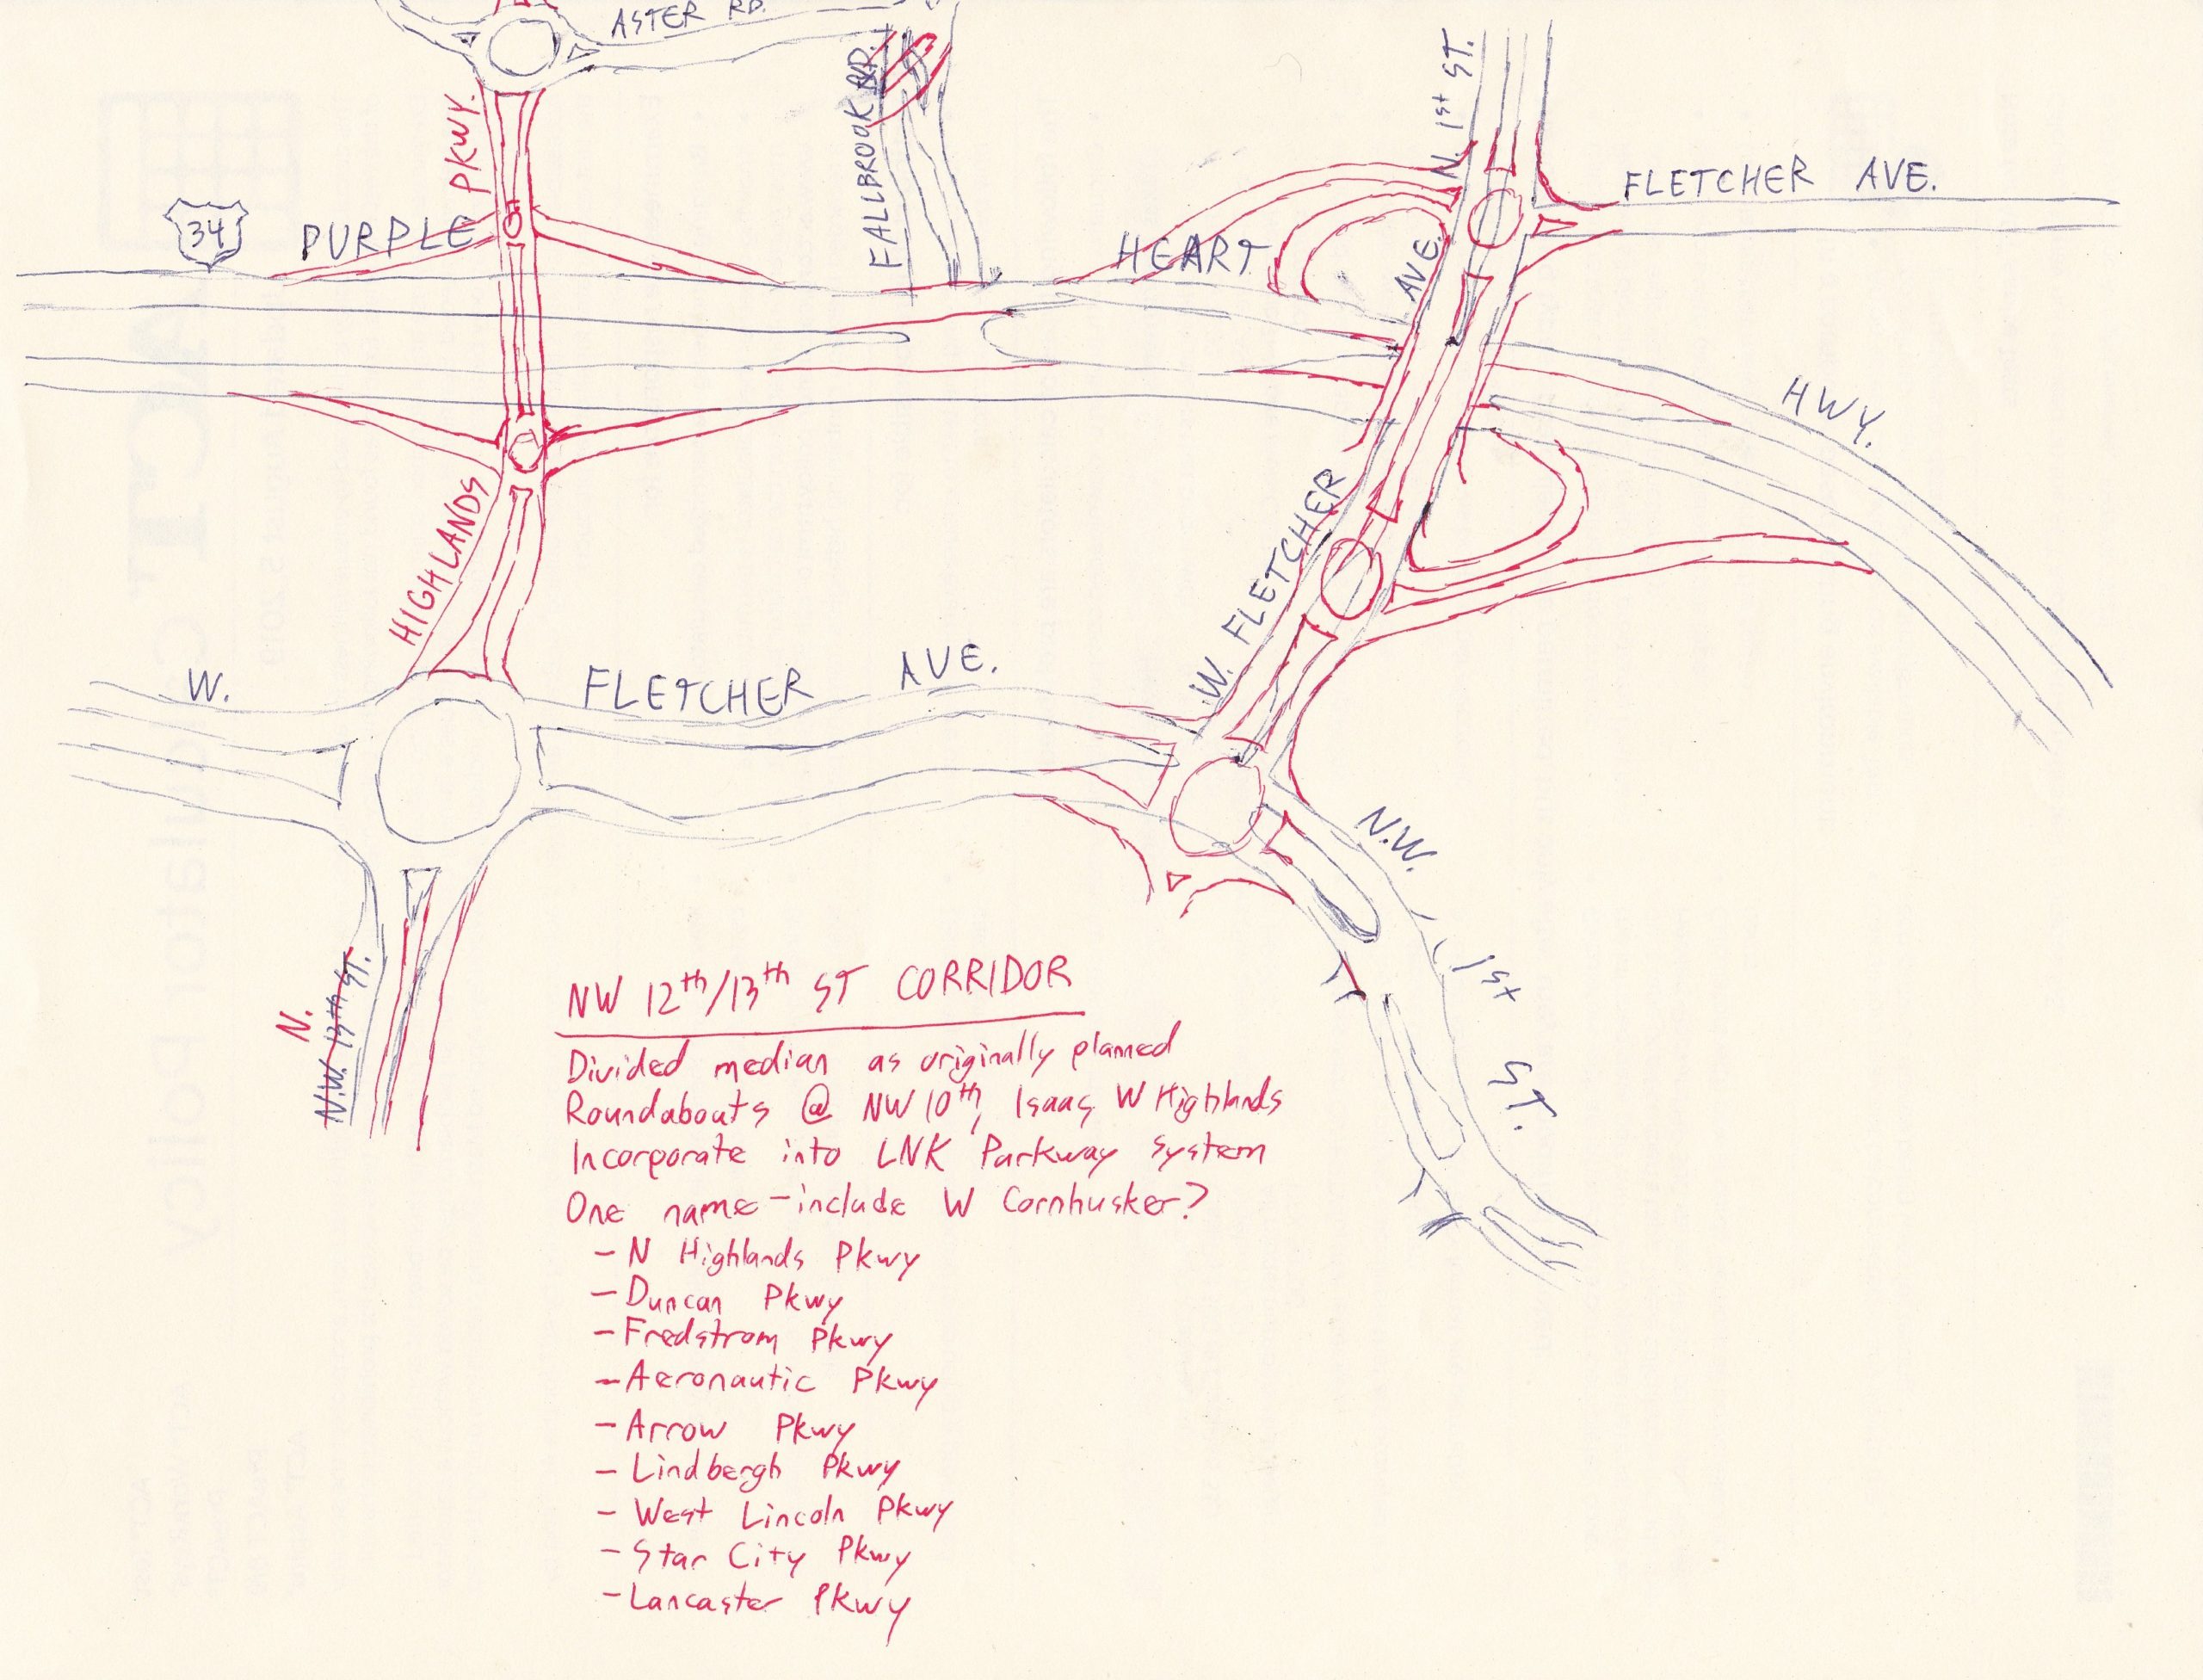 ASTER RD.
PKWY.
FALLBROOK RD.
N. 1st ST.
FLETCHER AVE.
34
PURPLE
HEART
HWY.
AVE.
HIGHLANDS
W. FLETCHER
W.
FLETCHER AVE.
N.W.
1st
ST.
N.
N.W. 13th ST.
NW 12th/13th ST CORRIDOR
Divided median as originally planned
Roundabouts @ NW 10th, Isaac, W Highlands
Incorporate into LNK Parkway system
One name - include W Cornhusker?
- N Highlands Pkwy
- Duncan Pkwy
- Fredstrom Pkwy
- Aeronautic Pkwy
- Arrow Pkwy
- Lindbergh Pkwy
- West Lincoln Pkwy
- Star City Pkwy
- Lancaster Pkwy